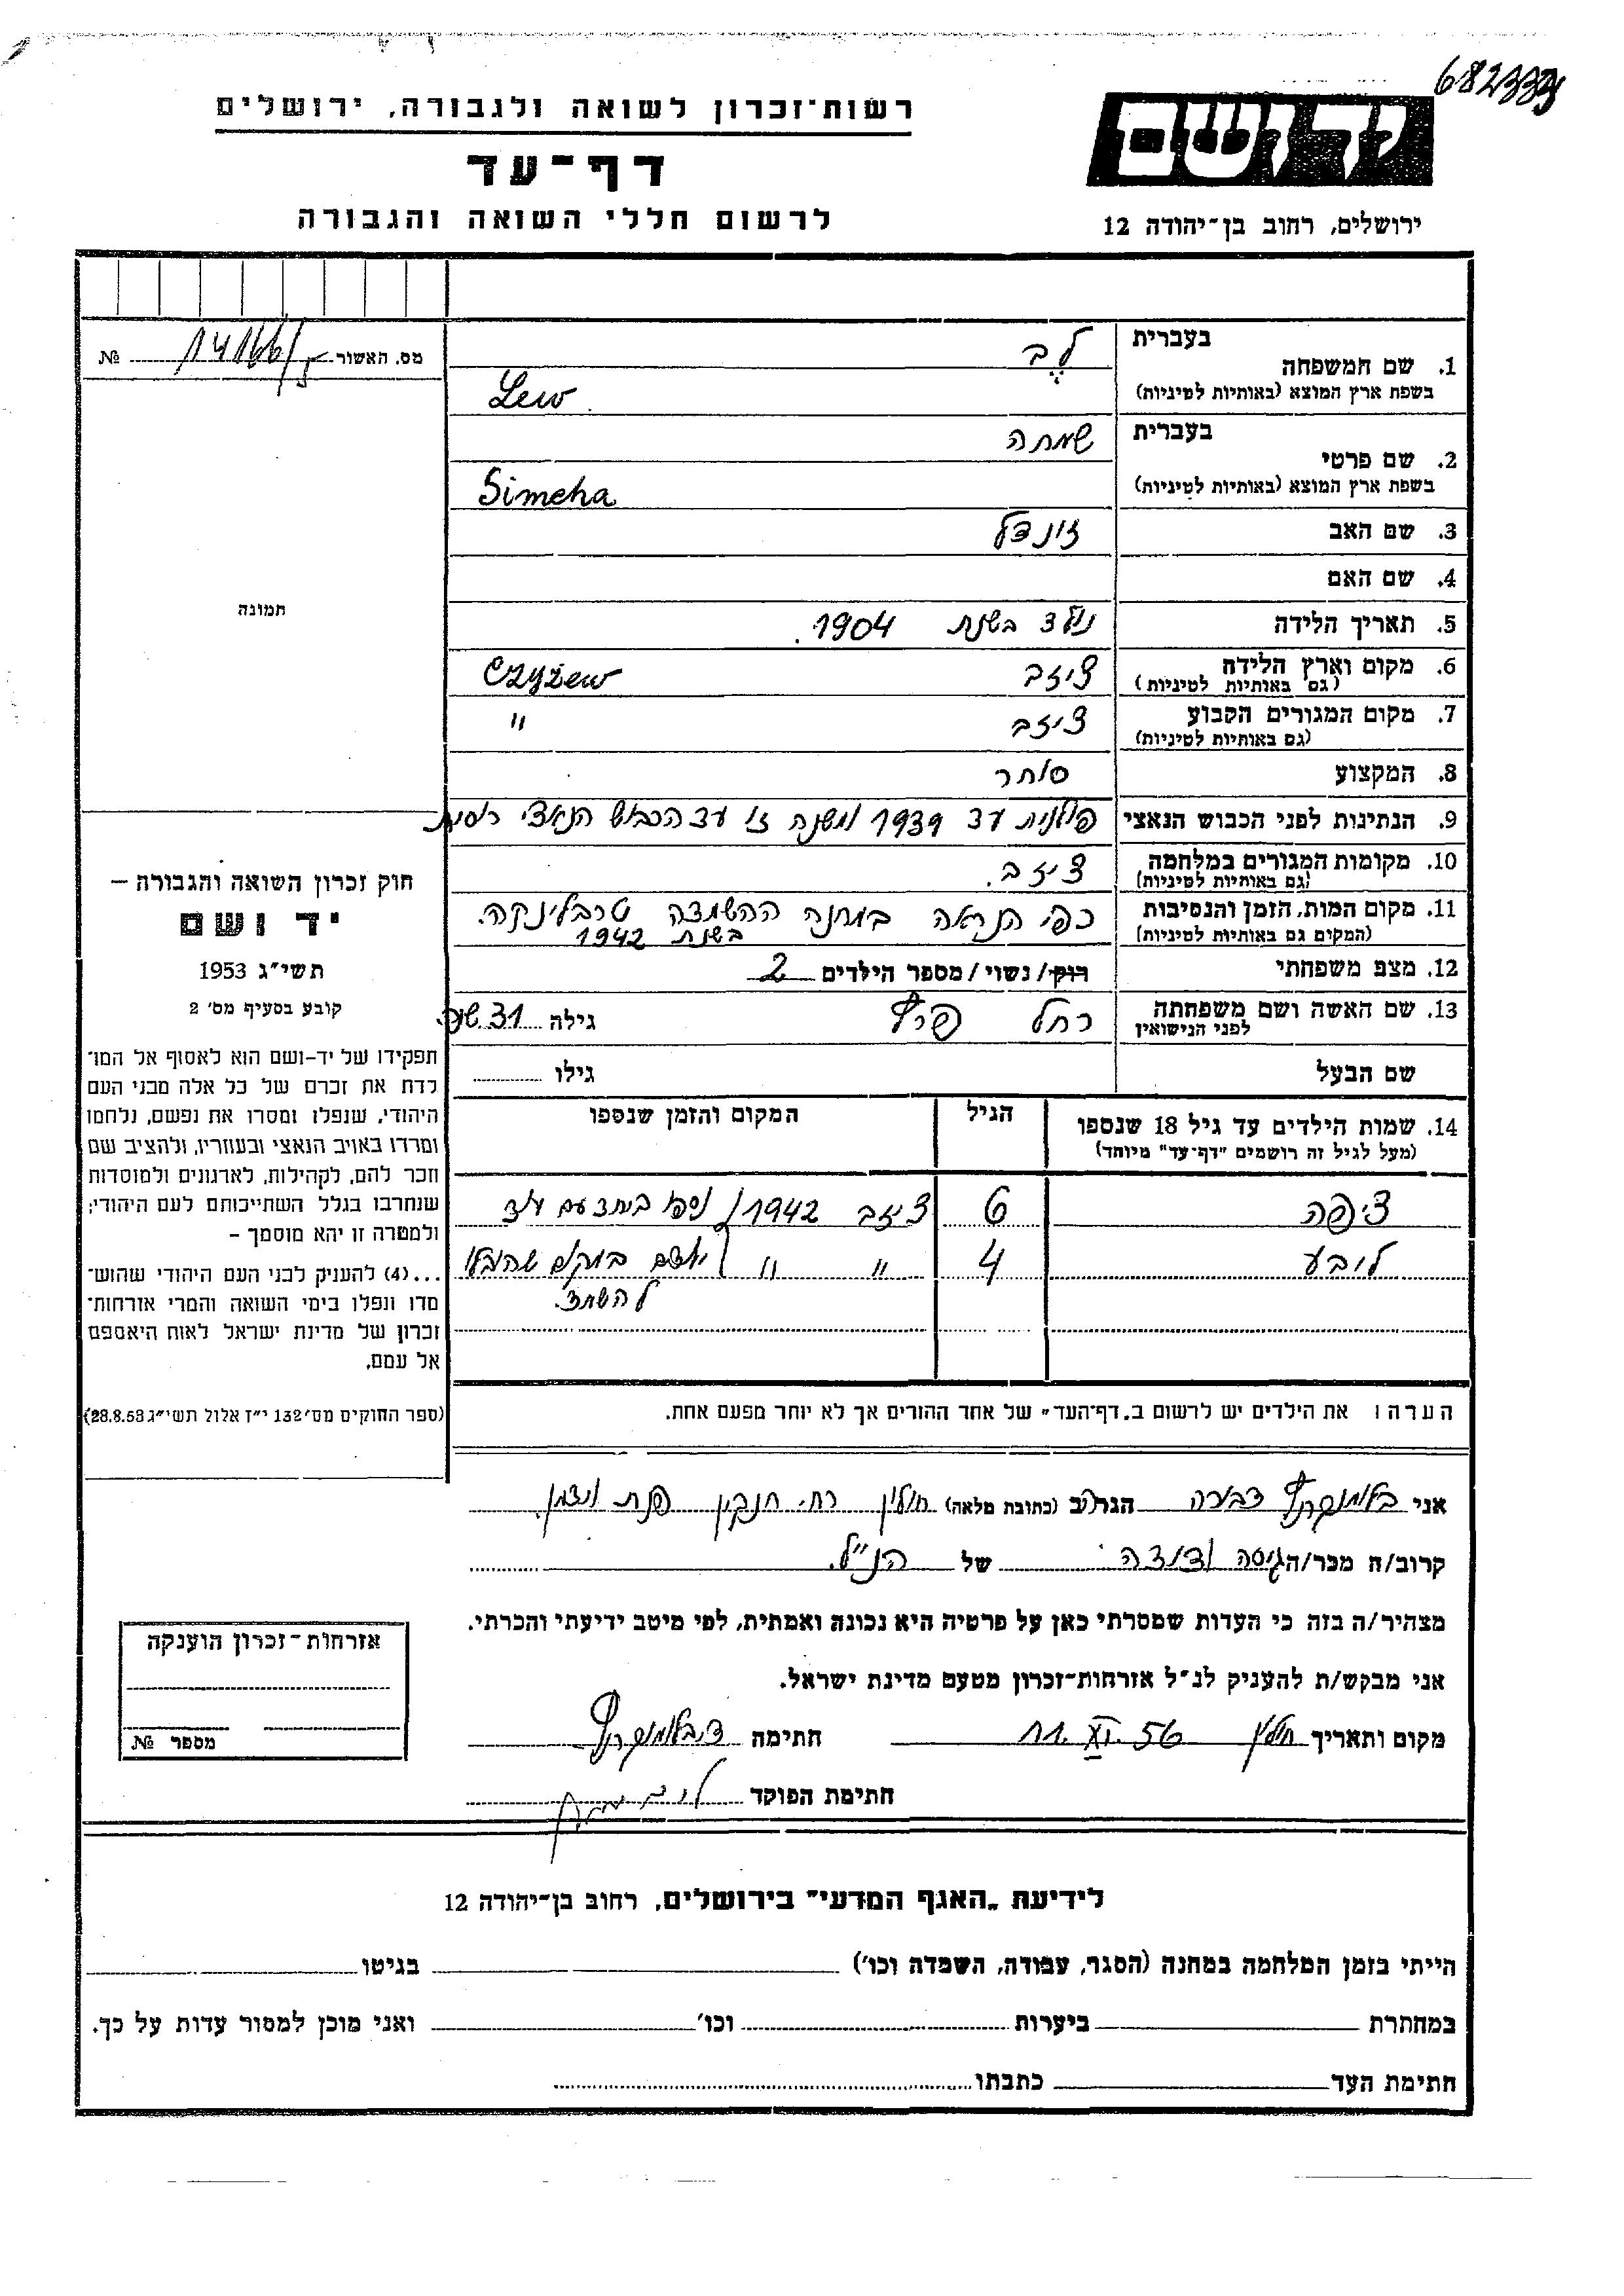 682333
רשות־זכרון לשואה ולגבורה, ירושלים
דף־עד
לרשום חללי השואה והגבורה
יד ושם
ירושלים, רחוב בן־יהודה 12
מס. האשור 14166/ №
תמונה
1. שם המשפחה
בעברית לב
בשפת ארץ המוצא (באותיות לטיניות) Lew
2. שם פרטי
בעברית שמחה
בשפת ארץ המוצא (באותיות לטיניות) Simcha
3. שם האב זונדל
4. שם האם
5. תאריך הלידה נולד בשנת 1904.
6. מקום וארץ הלידה ציזב Czyżew
(גם באותיות לטיניות)
7. מקום המגורים הקבוע ציזב "
(גם באותיות לטיניות)
8. המקצוע סוחר
9. הנתינות לפני הכבוש הנאצי פולנית עד 1939 ומשנה זו עד הכבוש הנאצי רוסית
10. מקומות המגורים במלחמה ציזב.
(גם באותיות לטיניות)
11. מקום המות, הזמן והנסיבות כפי הנראה במחנה ההשמדה טרבלינקה.
(המקום גם באותיות לטיניות) בשנת 1942
12. מצב משפחתי רוק/ נשוי / מספר הילדים 2
13. שם האשה ושם משפחתה רחל גילה 31
לפני הנישואין
שם הבעל גילו
14. שמות הילדים עד גיל 18 שנספו הגיל המקום והזמן שנספו
(מעל לגיל זה רושמים "דף־עד" מיוחד)
ציפה 6 ציזב 1942 נספו ביחד עם
ליבע 4 " " במקום שהובלו
להשמד.
הערה: את הילדים יש לרשום ב„דף־העד" של אחד ההורים אך לא יותר מפעם אחת.
חוק זכרון השואה והגבורה –
יד ושם
תשי"ג 1953
קובע בסעיף מס' 2
תפקידו של יד-ושם הוא לאסוף אל המו־
לדת את זכרם של כל אלה מבני העם
היהודי, שנפלו ומסרו את נפשם, נלחמו
ומרדו באויב הנאצי ובעוזריו, ולהציב שם
וזכר להם, לקהילות, לארגונים ולמוסדות
שנחרבו בגלל השתייכותם לעם היהודי;
ולמטרה זו יהא מוסמך –
...(4) להעניק לבני העם היהודי שהוש־
מדו ונפלו בימי השואה והמרי אזרחות־
זכרון של מדינת ישראל לאות היאספם
אל עמם.
(ספר החוקים מס' 132 י"ז אלול תשי"ג 28.8.53)
אני דבורה הגר/ב (כתובת מלאה) חולון רח. חנקין פנת ויצמן.
קרוב/ה מכר/ה גיסה ודודה של הנ"ל.
מצהיר/ה בזה כי העדות שמסרתי כאן על פרטיה היא נכונה ואמתית, לפי מיטב ידיעתי והכרתי.
אני מבקש/ת להעניק לנ"ל אזרחות־זכרון מטעם מדינת ישראל.
מקום ותאריך חולון 11.XI.56 חתימה
חתימת הפוקד
אזרחות־זכרון הוענקה
מספר №
לידיעת „האגף המדעי" בירושלים, רחוב בן־יהודה 12
הייתי בזמן המלחמה במחנה (הסגר, עבודה, השמדה וכו') בגיטו
במחתרת ביערות וכו' ואני מוכן למסור עדות על כך.
חתימת העד כתבתו